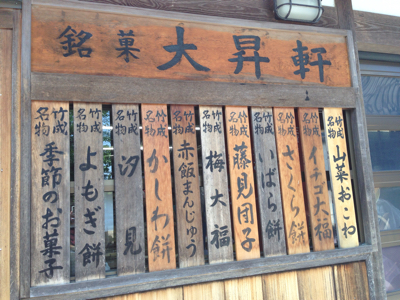 銘菓 大昇軒
竹成名物 山菜おこわ
竹成名物 イチゴ大福
竹成名物 さくら餅
竹成名物 いばら餅
竹成名物 藤見団子
竹成名物 梅大福
竹成名物 赤飯まんじゅう
竹成名物 かしわ餅
竹成名物 汐見
竹成名物 よもぎ餅
竹成名物 季節のお菓子